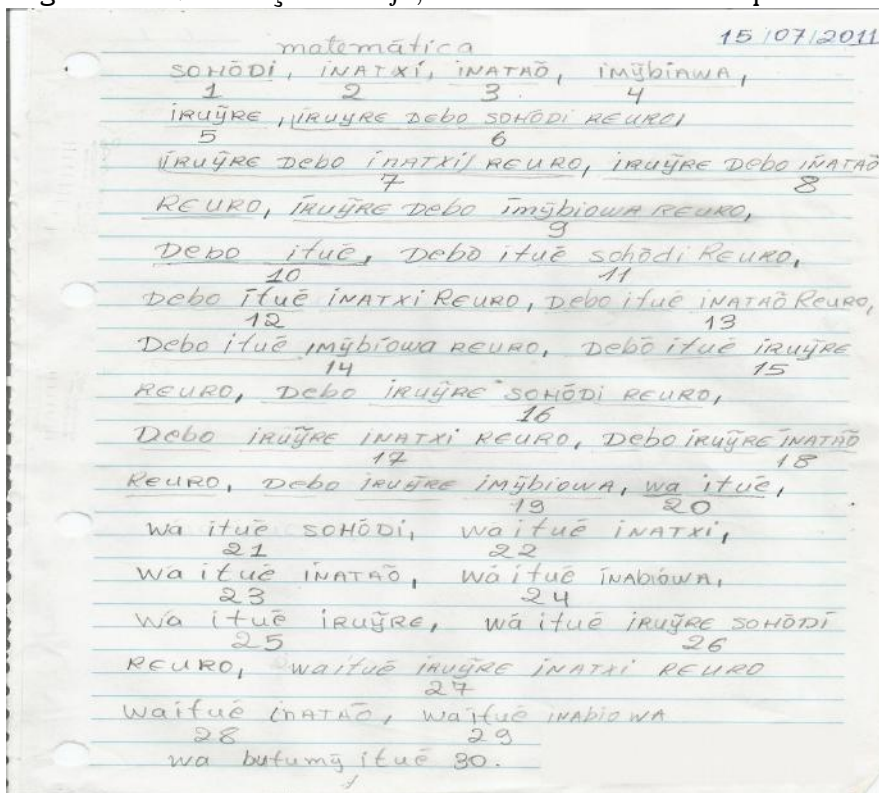 matemática 15/07/2011
SOHÕDI, INATXI, INATAÕ, IMỸBIAWA,
1 2 3 4
IRUỸRE, IRUYRE DEBO SOHÕDI REURO,
5 6
IRUỸRE DEBO INATXI REURO, IRUỸRE DEBO INATAÕ
7 8
REURO, IRUỸRE DEBO IMỸBIOWA REURO,
9
DEBO ITUẼ, DEBO ITUẼ SOHÕDI REURO,
10 11
DEBO ITUẼ INATXI REURO, DEBO ITUẼ INATAÕ REURO,
12 13
DEBO ITUẼ IMỸBIOWA REURO, DEBO ITUẼ IRUỸRE
14 15
REURO, DEBO IRUỸRE SOHÕDI REURO,
16
DEBO IRUỸRE INATXI REURO, DEBO IRUỸRE INATAÕ
17 18
REURO, DEBO IRUỸRE IMỸBIOWA, wa ituẽ,
19 20
wa ituẽ SOHÕDI, wa ituẽ INATXI,
21 22
wa ituẽ INATAÕ, wa ituẽ INABIOWA,
23 24
wa ituẽ IRUỸRE, wa ituẽ IRUỸRE SOHÕDI
25 26
REURO, waituẽ IRUỸRE INATXI REURO
27
waituẽ INATAÕ, waituẽ INABIOWA
28 29
wa butumỹ ituẽ 30.